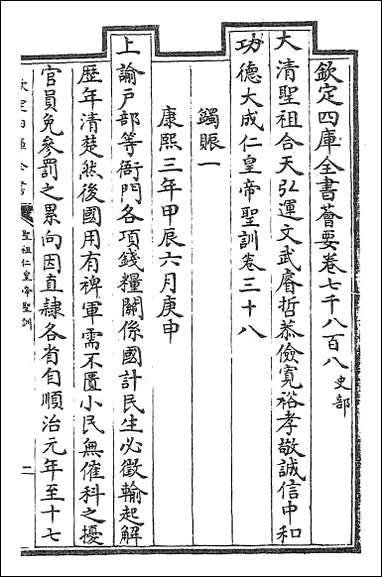 欽定四庫全書薈要卷七千八百八 史部
大清聖祖合天弘運文武睿哲恭儉寬裕孝敬誠信中和
功德大成仁皇帝聖訓卷三十八
蠲賑一
康熙三年甲辰六月庚申
上諭戶部等衙門各項錢糧關係國計民生必徵輸起解
歴年清楚然後國用有裨軍需不匱小民無催科之擾
官員免參罰之累向因直隷各省自順治元年至十七
欽定四庫全書
聖祖仁皇帝聖訓